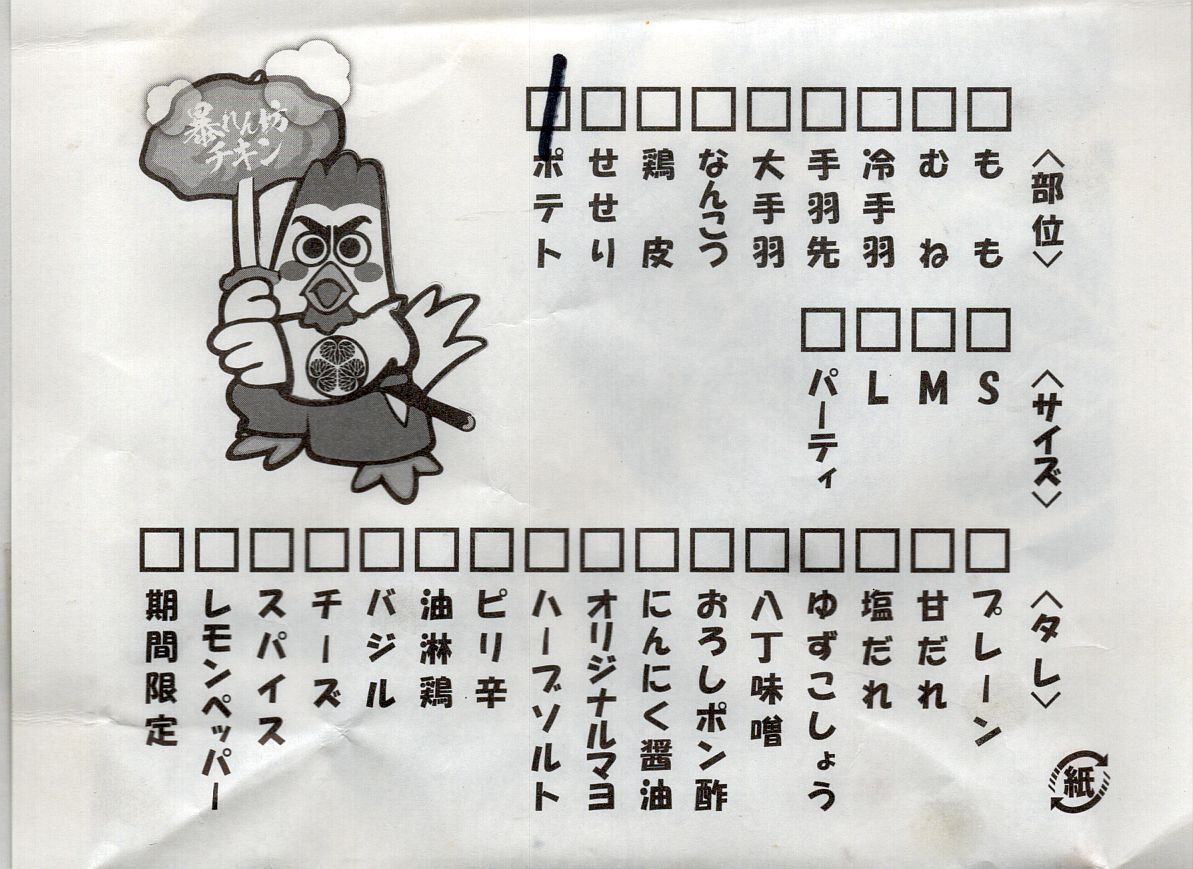 暴れん坊
チキン
〈部位〉
もも
むね
冷手羽
手羽先
大手羽
なんこつ
鶏皮
せせり
ポテト
〈サイズ〉
S
M
L
パーティ
〈タレ〉
プレーン
甘だれ
塩だれ
ゆずこしょう
八丁味噌
おろしポン酢
にんにく醤油
オリジナルマヨ
ハーブソルト
ピリ辛
油淋鶏
バジル
チーズ
スパイス
レモンペッパー
期間限定
紙